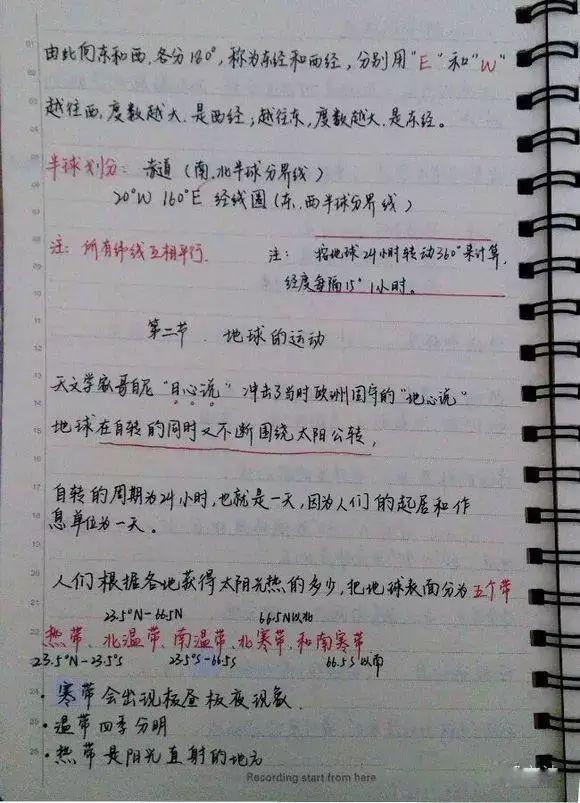 由此向东和西,各分180°,称为东经和西经,分别用"E"和"W"
越往西,度数越大,是西经;越往东,度数越大,是东经。
半球划分:赤道(南、北半球分界线)
20°W 160°E 经线圈(东、西半球分界线)
注:所有纬线互相平行.
注:按地球24小时转动360°来计算,
经度每隔15° 1小时。
第二节 地球的运动
天文学家哥白尼"日心说"冲击了当时欧洲固守的"地心说"
地球在自转的同时又不断围绕太阳公转,
自转的周期为24小时,也就是一天,因为人们的起居和作
息单位为一天。
人们根据各地获得太阳光热的多少,把地球表面分为五个带
23.5°N-66.5N 66.5N以北
热带、北温带、南温带、北寒带、和南寒带
23.5°N-23.5°S 23.5°S-66.5S 66.5S以南
·寒带会出现极昼极夜现象.
·温带四季分明
·热带是阳光直射的地方
Recording start from here